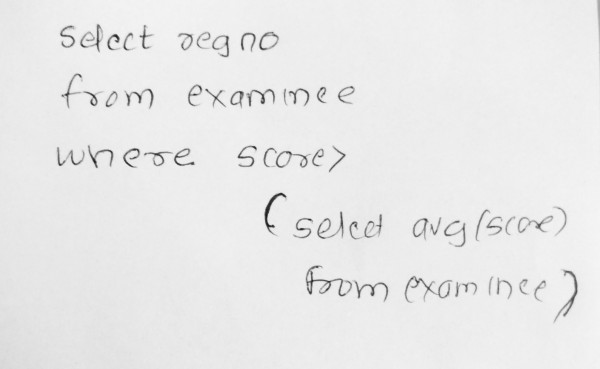 Select regno
from examinee
where score>
(select avg(score)
from examinee)